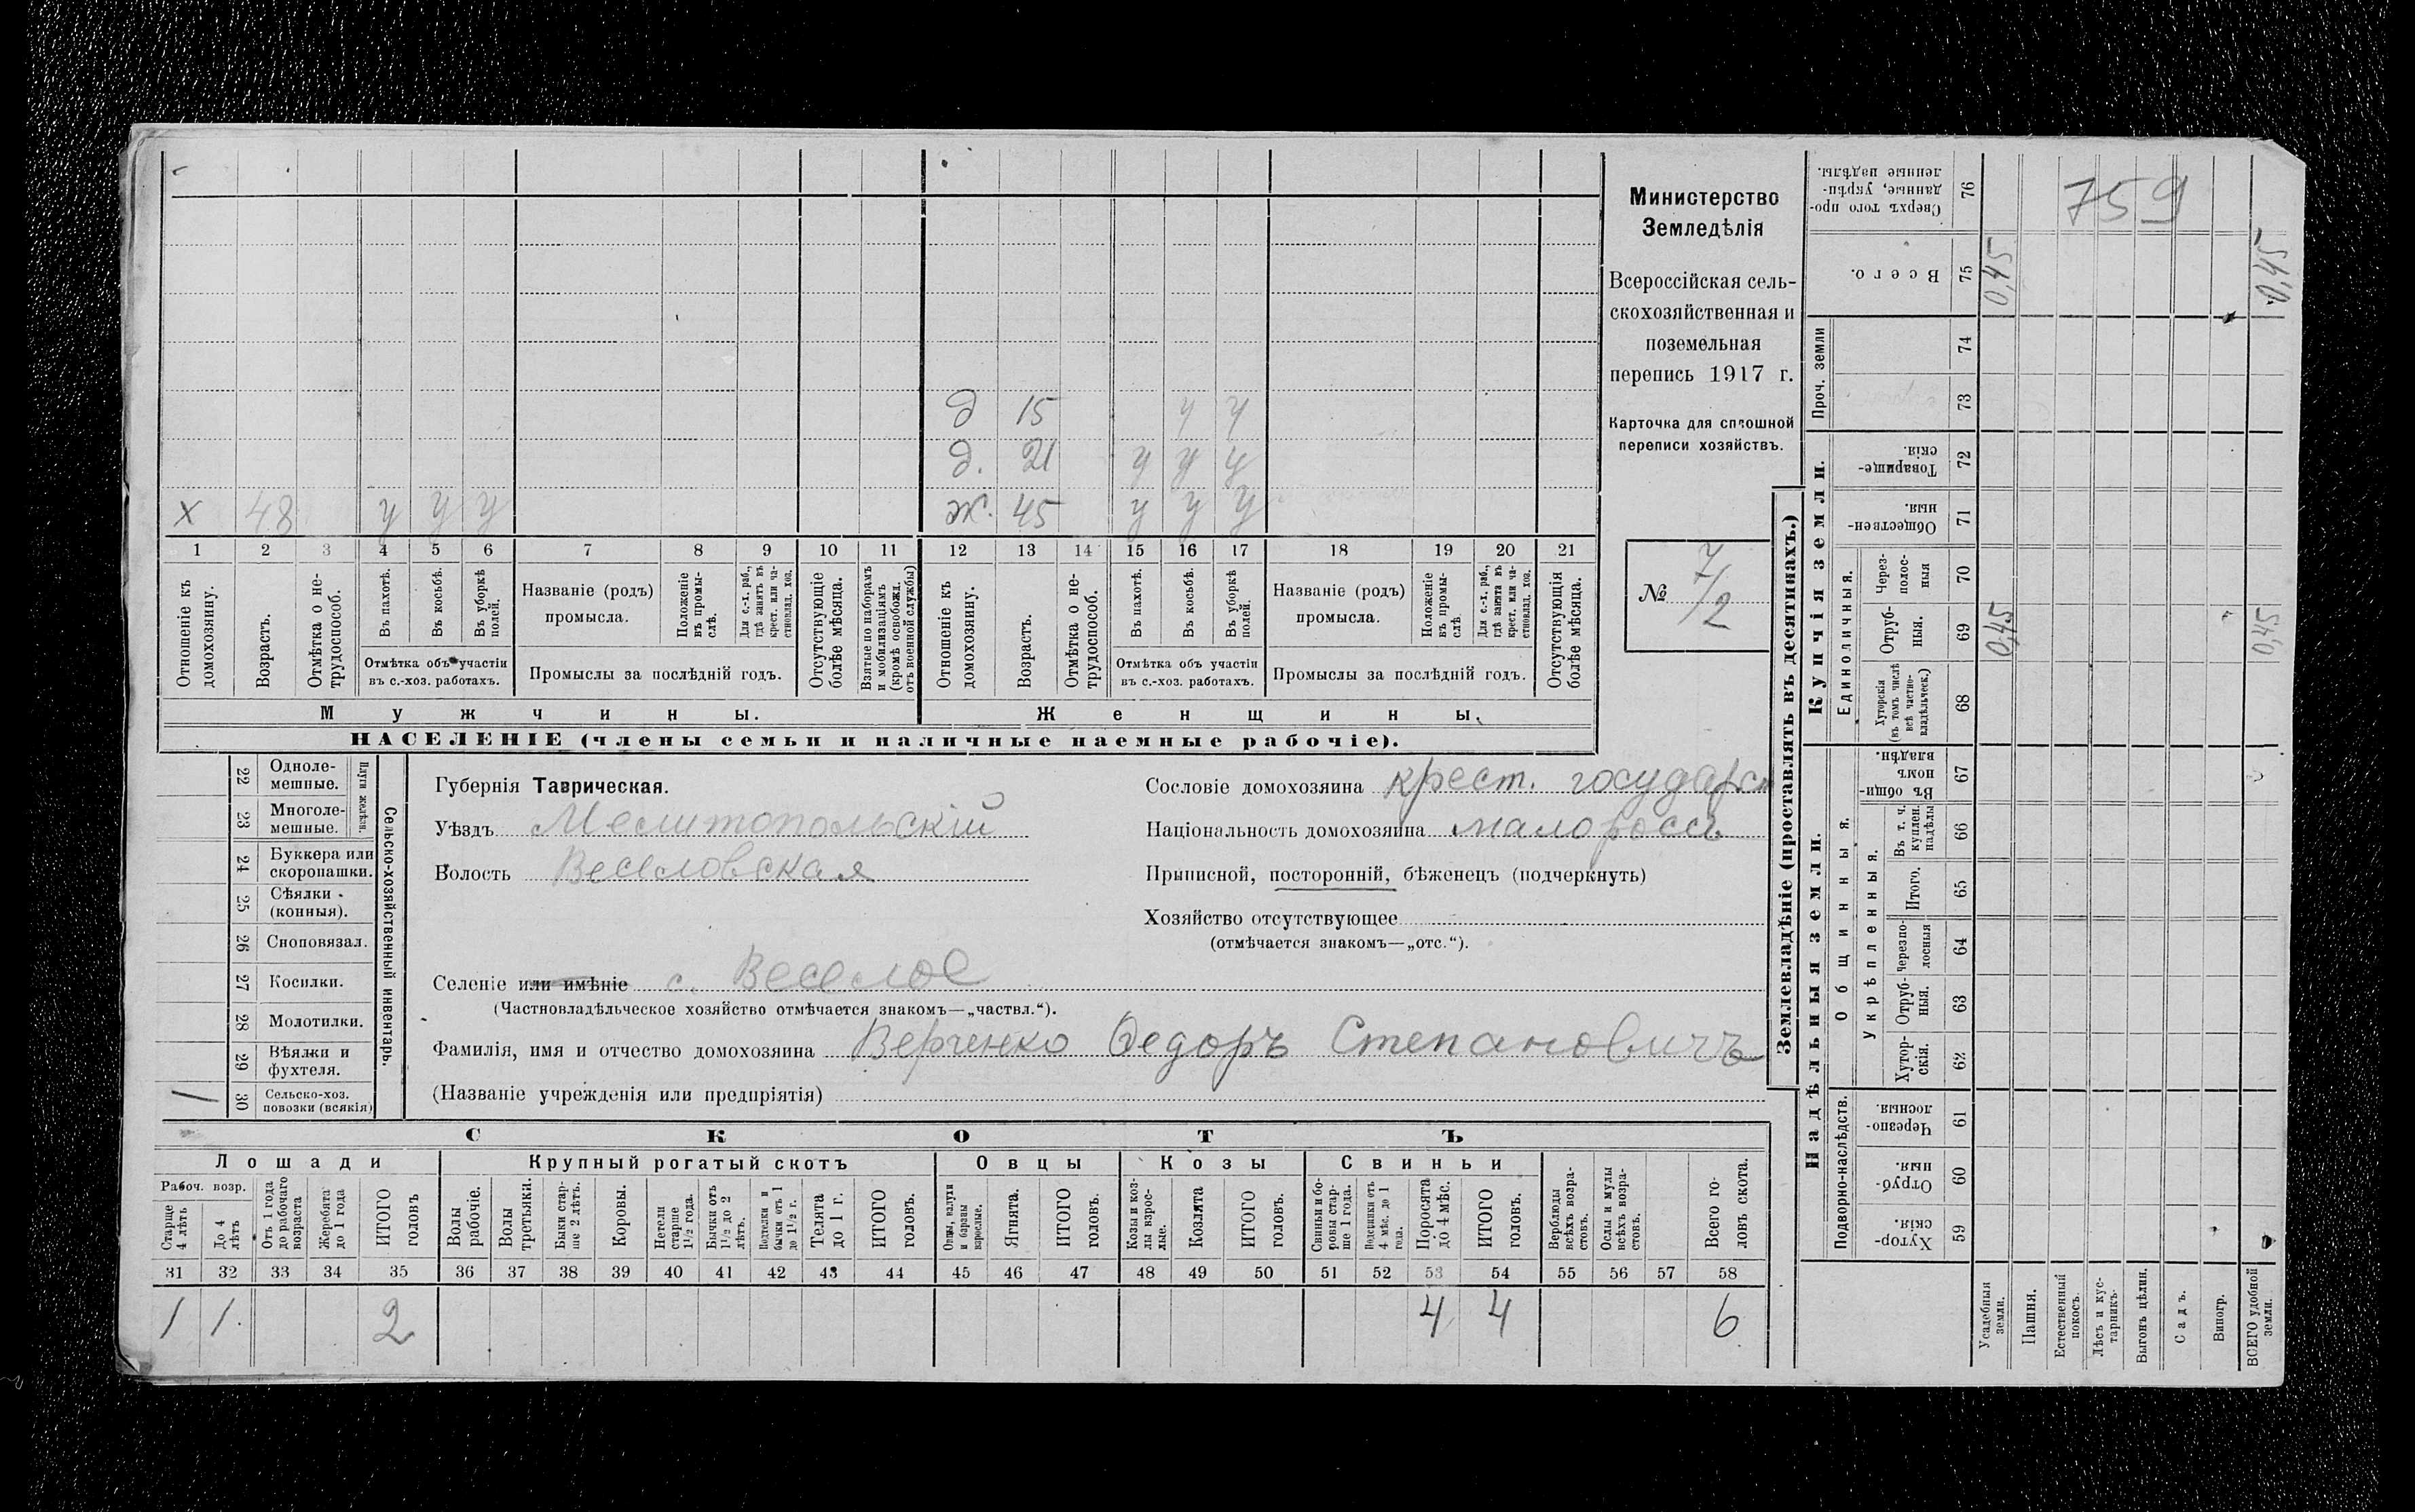 759
Министерство
Земледѣлія
Всероссійская сель-
скохозяйственная и
поземельная
перепись 1917 г.
Карточка для сплошной
переписи хозяйствъ.
№ 7/2
д 15 у у
д. 21 у у у
х 48 у у у ж. 45 у у у
1 2 3 4 5 6 7 8 9 10 11 12 13 14 15 16 17 18 19 20 21
Отношеніе къ домохозяину.
Возрастъ.
Отмѣтка о не-трудоспособ.
Въ пахотѣ.
Въ косьбѣ.
Въ уборкѣ полей.
Отмѣтка объ участіи
въ с.-хоз. работахъ.
Названіе (родъ)
промысла.
Положеніе въ промы-слѣ.
Для с.-х. раб., гдѣ занятъ въ крест. или ча-стновлад. хоз.
Промыслы за послѣдній годъ.
Отсутствующіе болѣе мѣсяца.
Взятые по наборамъ и мобилизаціямъ (кромѣ освобожд. отъ военной службы)
Отношеніе къ домохозяину.
Возрастъ.
Отмѣтка о не-трудоспособ.
Въ пахотѣ.
Въ косьбѣ.
Въ уборкѣ полей.
Отмѣтка объ участіи
въ с.-хоз. работахъ.
Названіе (родъ)
промысла.
Положеніе въ промы-слѣ
Для с.-х. раб., гдѣ занята въ крест. или ча-стновлад. хоз.
Промыслы за послѣдній годъ.
Отсутствующія болѣе мѣсяца.
Мужчины. Женщины.
НАСЕЛЕНІЕ (члены семьи и наличные наемные рабочіе).
Сельско-хозяйственный инвентарь.
Плуги желѣзн.
22 Одноле-мешные.
23 Многоле-мешные.
24 Буккера или скоропашки.
25 Сѣялки (конныя).
26 Сноповязал.
27 Косилки.
28 Молотилки.
29 Вѣялки и фухтеля.
1 30 Сельско-хоз. повозки (всякія)
Губернія Таврическая.
Уѣздъ Мелитопольскій
Волость Веселовская
Сословіе домохозяина крест. государст
Національность домохозяина малороссъ
Приписной, посторонній, бѣженецъ (подчеркнуть)
Хозяйство отсутствующее
(отмѣчается знакомъ—„отс.“).
Селеніе или имѣніе с. Веселое
(Частновладѣльческое хозяйство отмѣчается знакомъ—„частвл.“).
Фамилія, имя и отчество домохозяина Верченко Ѳедоръ Степановичъ
(Названіе учрежденія или предпріятія)
СКОТЪ
Лошади Крупный рогатый скотъ Овцы Козы Свиньи
Рабоч. возр.
Старше 4 лѣтъ
До 4 лѣтъ
Отъ 1 года до рабочаго возраста
Жеребята до 1 года
ИТОГО головъ
Волы рабочіе.
Волы третьяки.
Быки стар-ше 2 лѣтъ.
Коровы.
Нетели старше 1½ года.
Бычки отъ 1½ до 2 лѣтъ.
Подтелки и бычки отъ 1 до 1½ г.
Телята до 1 г.
ИТОГО головъ.
Овцы, валухи и бараны взрослые.
Ягнята.
ИТОГО головъ.
Козы и коз-лы взрос-лые.
Козлята
ИТОГО головъ.
Свиньи и бо-ровы стар-ше 1 года.
Подсвинки отъ 4 мѣс. до 1 года.
Поросята до 4 мѣс.
ИТОГО головъ.
Верблюды всѣхъ возра-стовъ.
Ослы и мулы всѣхъ возра-стовъ.
Всего го-ловъ скота.
31 32 33 34 35 36 37 38 39 40 41 42 43 44 45 46 47 48 49 50 51 52 53 54 55 56 57 58
1 1. 2 4 4 6
Землевладѣніе (проставлять въ десятинахъ.)
Надѣльныя земли. Купчія земли.
Подворно-наслѣдств.
Общинныя.
Укрѣпленныя.
Единоличныя.
Проч. земли
59 Хутор-скія.
60 Отруб-ныя.
61 Черезпо-лосныя.
62 Хутор-скія.
63 Отруб-ныя.
64 Черезпо-лосныя
65 Итого.
66 Въ т. ч. куплен. надѣлы
67 Въ общи-номъ владѣн.
68 Хуторскія (въ томъ числѣ всѣ частно-владѣльческ.)
69 Отруб-ныя.
70 Через-полос-ныя
71 Обществен-ныя.
72 Товарище-скія.
73
74
75 Всего.
76 Сверхъ того про-данные, укрѣп-ленные надѣлы.
Усадебныя земли. 0,45 0,45
Пашня.
Естественный покосъ.
Лѣсъ и кус-тарникъ.
Выгонъ цѣлин.
Садъ.
Виногр.
ВСЕГО удобной земли. 0,45 0,45